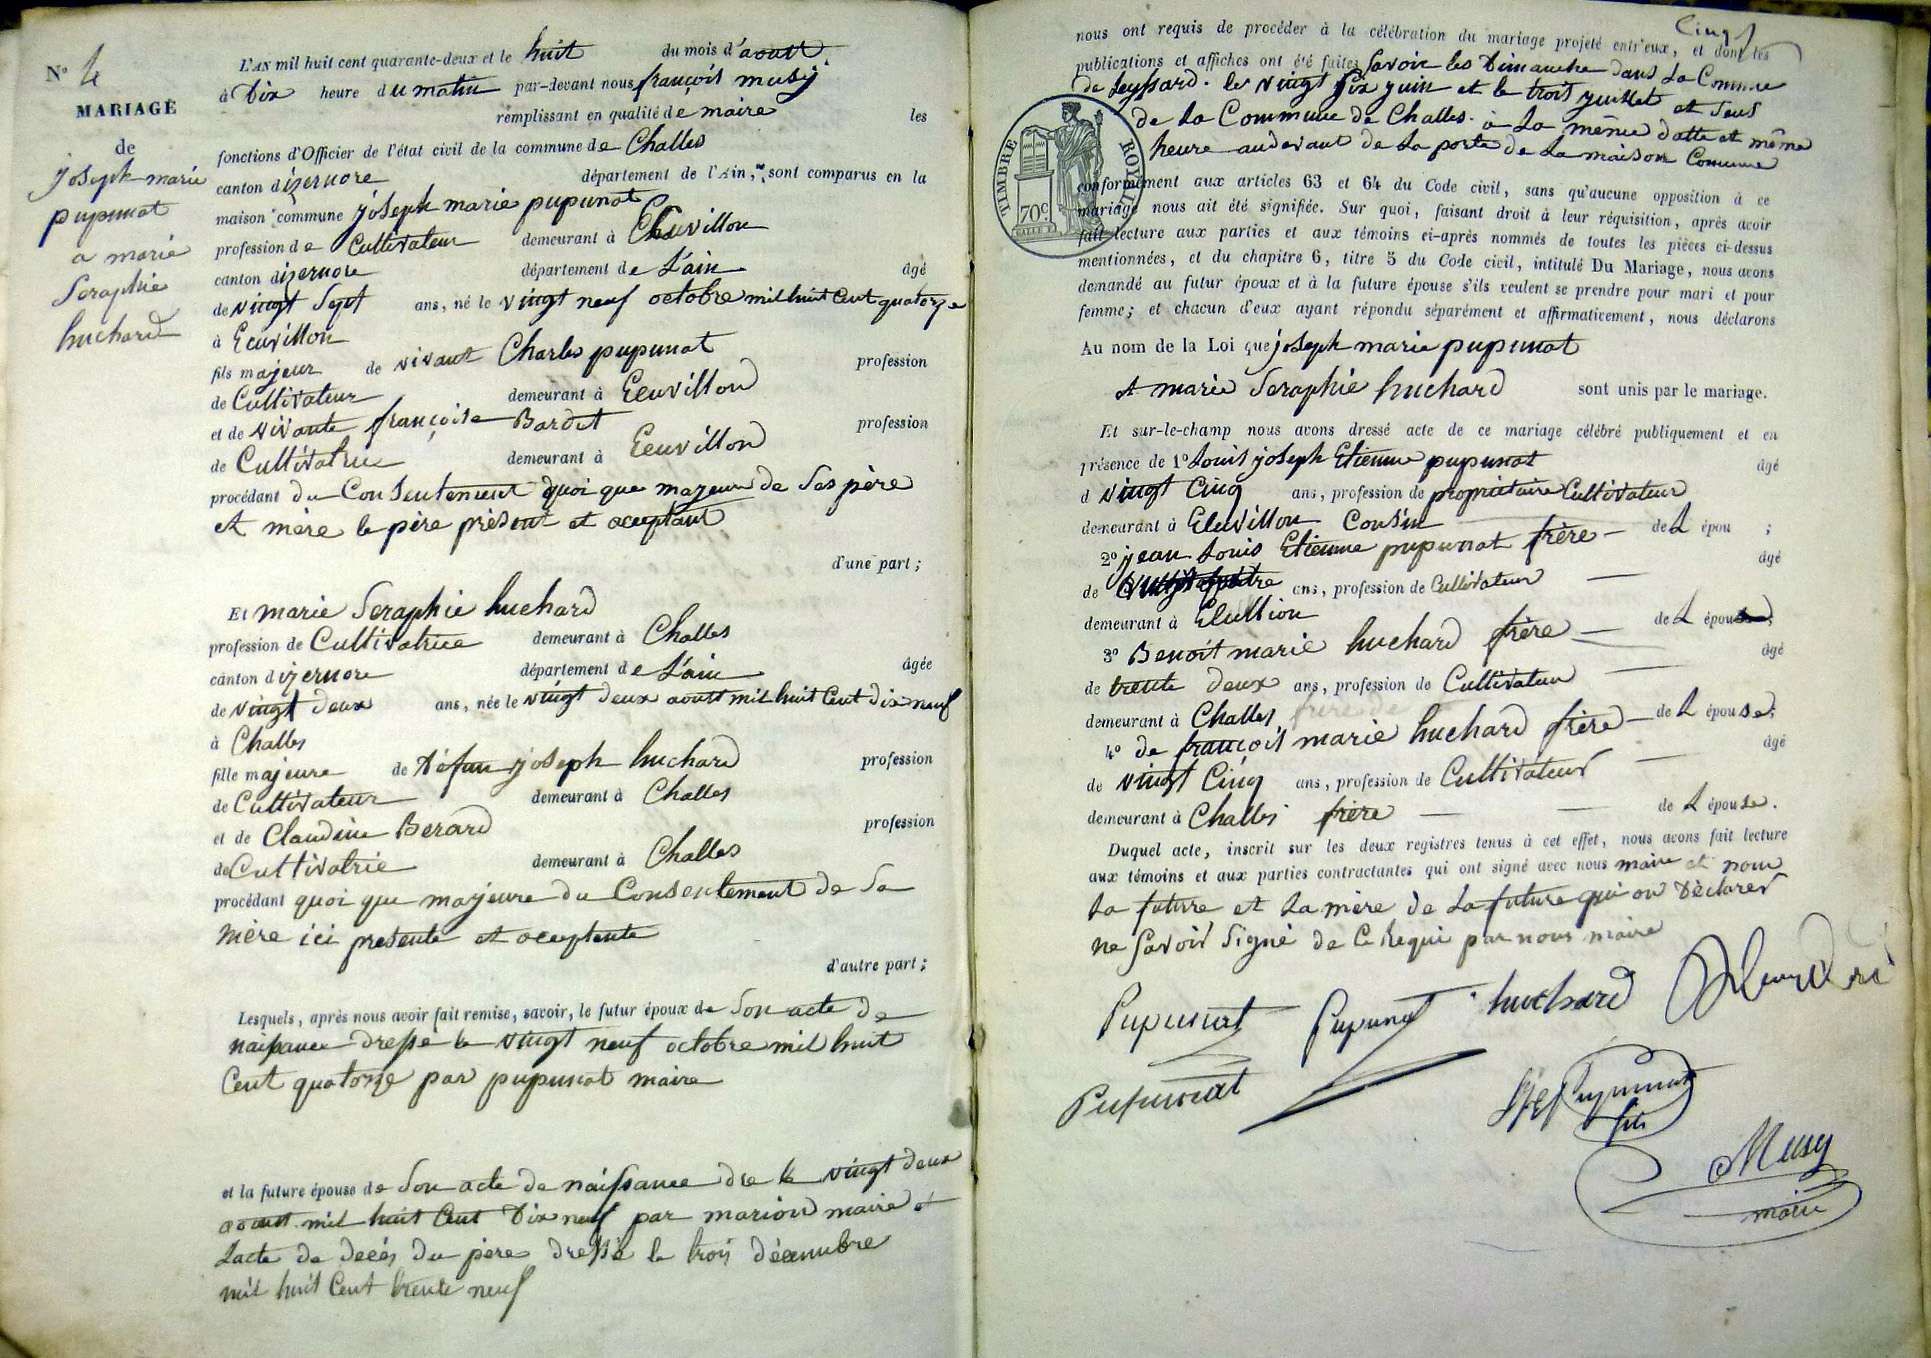 N° 4
MARIAGE
de
joseph marie
pupunat
a marie
Seraphie
huchard
L'AN mil huit cent quarante-deux et le huit du mois d'aoust
à Dix heure du matin par-devant nous françois musy
remplissant en qualité de maire les
fonctions d'Officier de l'état civil de la commune de Challes
canton d'izernore département de l'Ain, sont comparus en la
maison commune joseph marie pupunat
profession de Cultivateur demeurant à
canton dizernore département de L'ain âgé
de vingt Sept ans, né le vingt neuf octobre mil huit Cent quatorze
à Ecuvillon
fils majeur de vivant Charles pupunat profession
de Cultivateur demeurant à Ecuvillon
et de vivante françoise Bardet profession
de Cultivatrice demeurant à Ecuvillon
procédant du Consentement quoi que majeur de Ses père
et mère le père présent et acceptant
d'une part ;
Et marie Seraphie huchard
profession de Cultivatrice demeurant à Challes
canton dizernore département de L'ain âgée
de vingt deux ans, née le vingt deux aoust mil huit Cent dix neuf
à Challes
fille majeure de défun joseph huchard profession
de Cultivateur demeurant à Challes
et de Claudine Berard profession
de Cultivatrie demeurant à Challes
procédant quoi que majeure du Consentement de Sa
mère ici presente et acceptente
d'autre part ;
Lesquels, après nous avoir fait remise, savoir, le futur époux de Son acte de
naissance dresse le vingt neuf octobre mil huit
Cent quatorze par pupunat maire
et la future épouse de Son acte de naissance dre le vingt deux
aoust mil huit Cent Dix neuf par marion maire et
Lacte de decés du père dressé le trois décembre
mil huit Cent trente neuf
nous ont requis de procéder à la célébration du mariage projeté entr'eux, et dont les
publications et affiches ont été faites Savoir les Dimanche dans La Commune
de Leyssard. le vingt Six juin et le trois juillet et
de La Commune de Challes. à La même datte et même
heure au devant de La porte de La maison Commune
TIMBRE ROYAL
70c.
conformément aux articles 63 et 64 du Code civil, sans qu'aucune opposition à ce
mariage nous ait été signifiée. Sur quoi, faisant droit à leur réquisition, après avoir
fait lecture aux parties et aux témoins ci-après nommés de toutes les pièces ci-dessus
mentionnées, et du chapitre 6, titre 5 du Code civil, intitulé Du Mariage, nous avons
demandé au futur époux et à la future épouse s'ils veulent se prendre pour mari et pour
femme ; et chacun d'eux ayant répondu séparément et affirmativement, nous déclarons
Au nom de la Loi que joseph marie pupunat
et marie Seraphie huchard sont unis par le mariage.
Et sur-le-champ nous avons dressé acte de ce mariage célébré publiquement et en
présence de 1° Louis joseph Etienne pupunat âgé
d vingt Cinq ans, profession de propriétaire Cultivateur
demeurant à Cousin de L épou ;
2° jean Louis Etienne pupunat frère âgé
de ans, profession de Cultivateur
demeurant à de L épou
3° Benoit marie huchard frère âgé
de trente deux ans, profession de Cultivateur
demeurant à Challes de L épouse ;
4° de françois marie huchard frère âgé
de vingt Cinq ans, profession de Cultivateur
demeurant à Challes frère de L épouse.
Duquel acte, inscrit sur les deux registres tenus à cet effet, nous avons fait lecture
aux témoins et aux parties contractantes qui ont signé avec nous maire et nom
La future et La mère de La future qui on Déclarer
ne Savoir Signé de Ce Requi par nous maire
Pupunat Pupunat huchard
Pupunat Pupunat
fils
Musy
maire